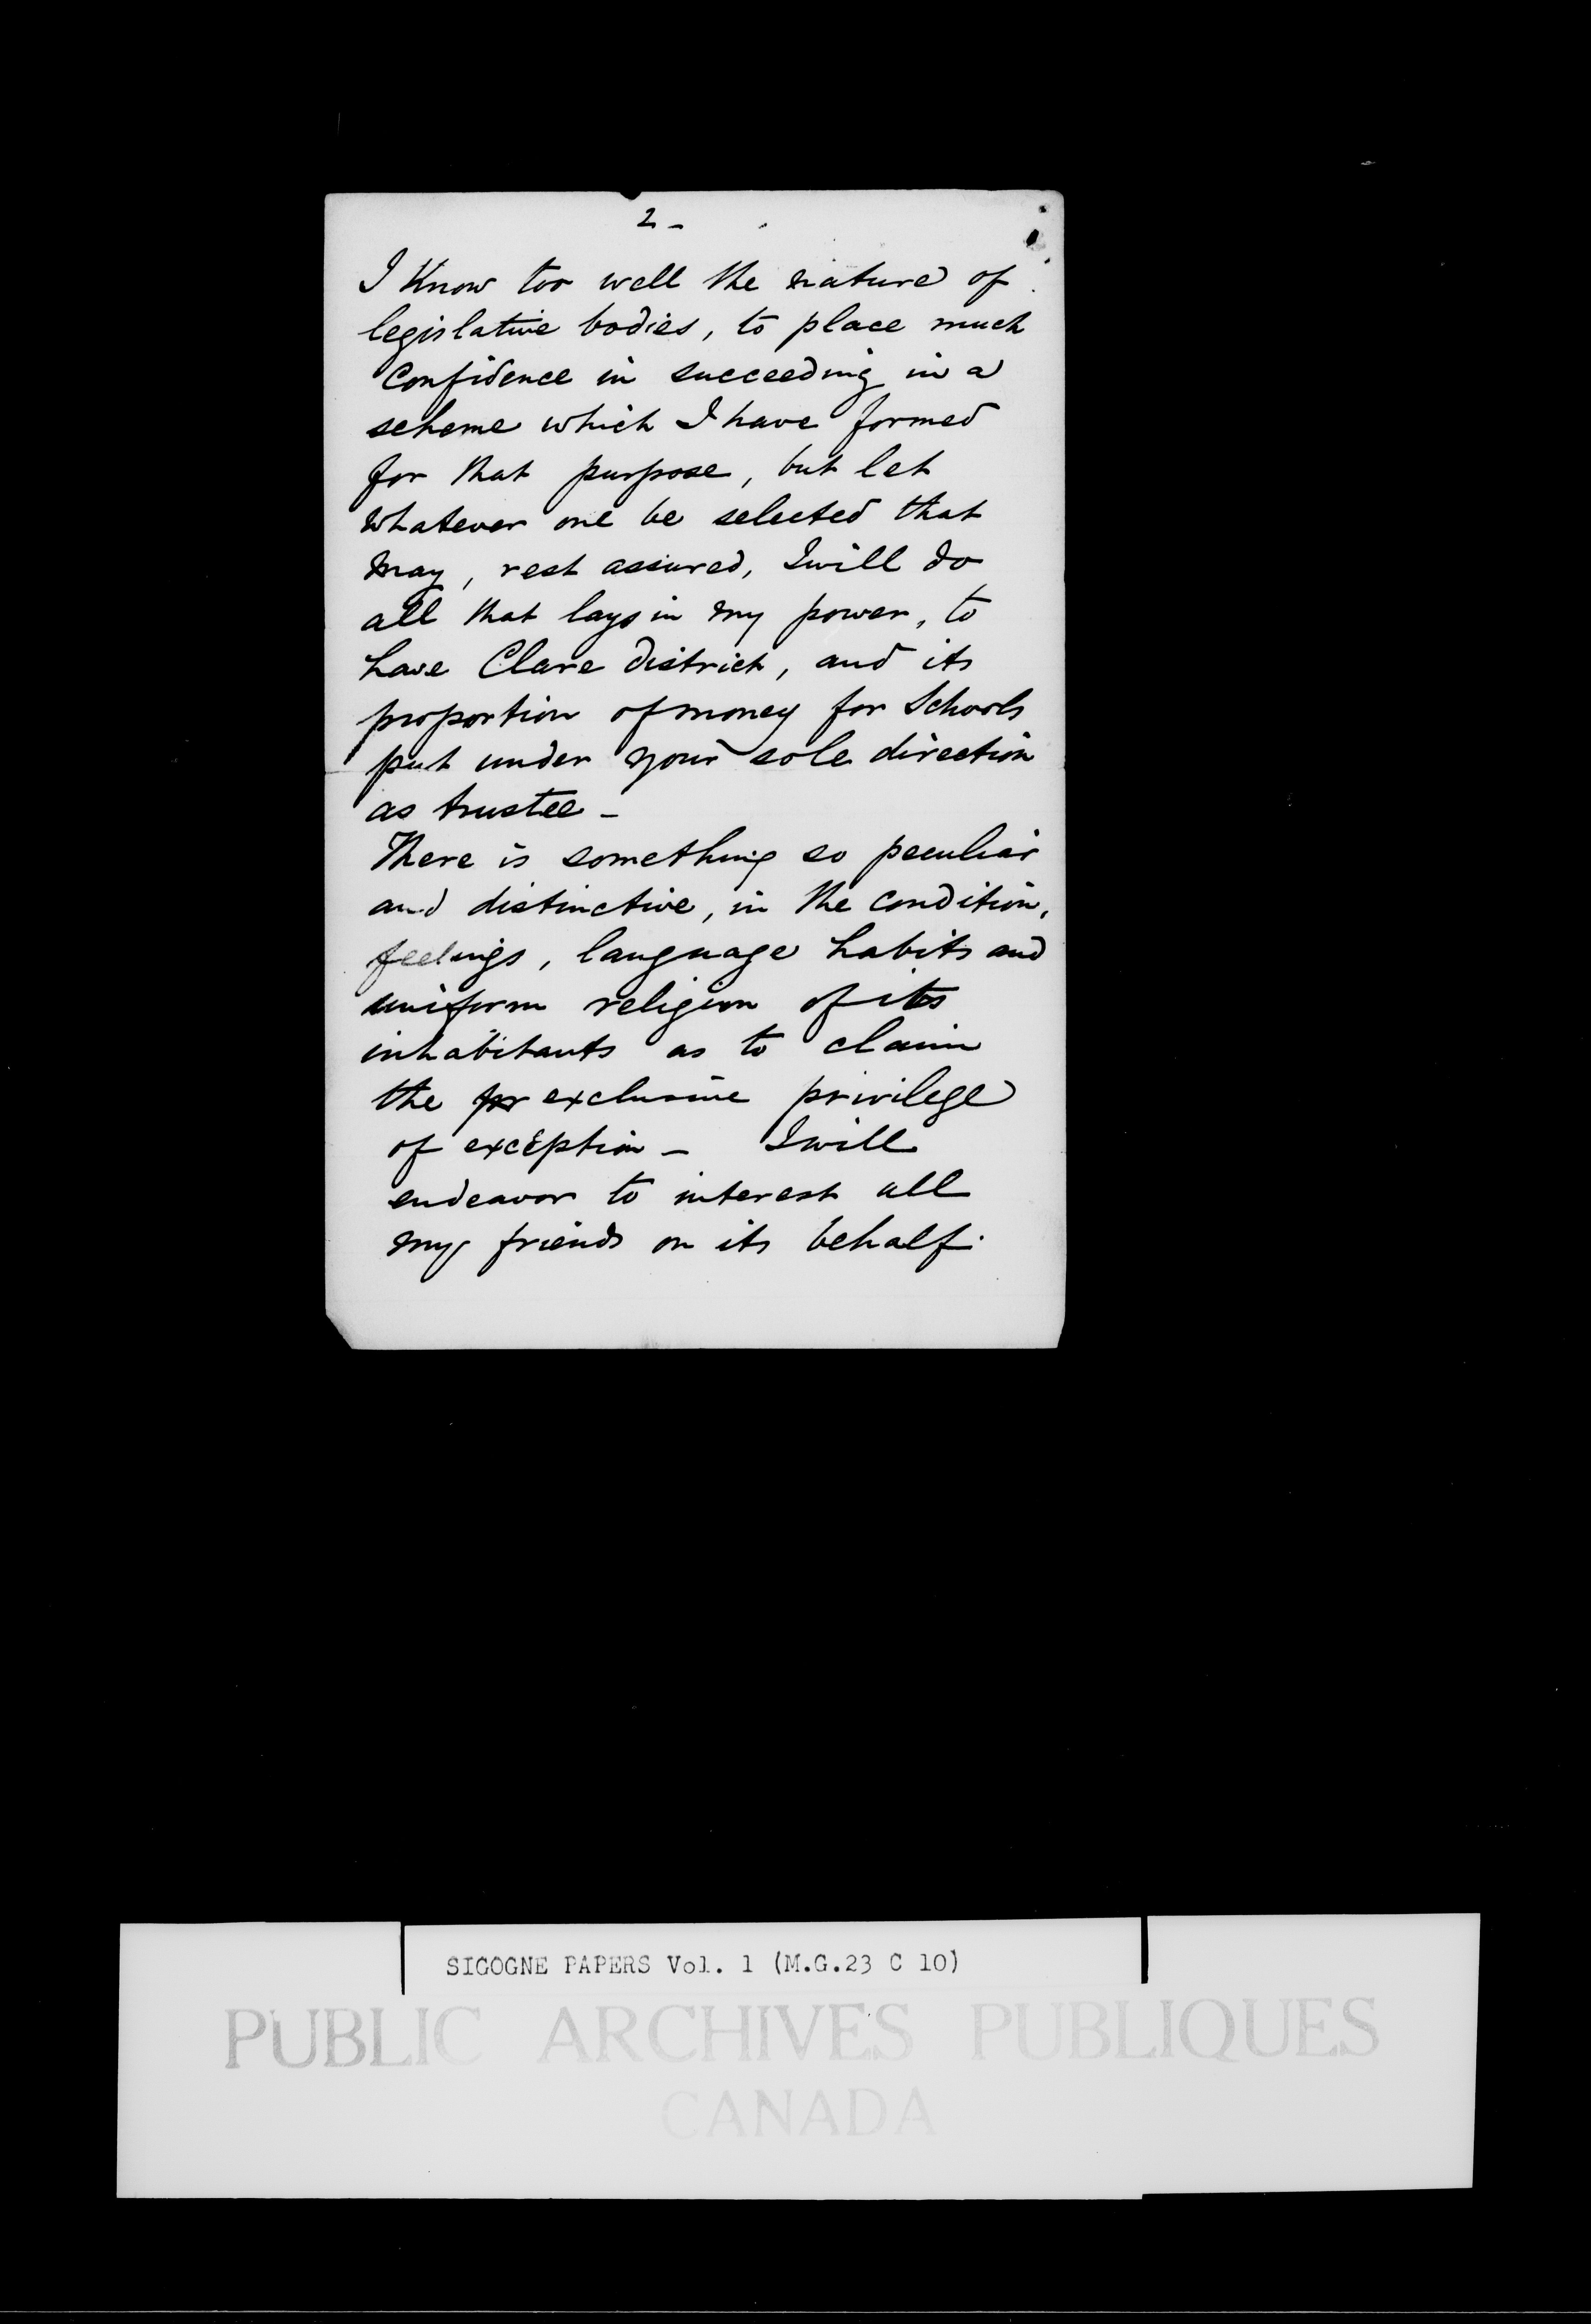 2 -
I Know too well the nature of
legislative bodies, to place much
Confidence in succeeding in a
scheme which I have formed
for that purpose, but let
whatever one be selected that
may, rest assured, I will do
all that lays in my power, to
have Clare district, and its
proportion of money for Schools
put under your sole direction
as trustee -
There is something so peculiar
and distinctive, in the condition,
feelings, language habits and
uniform religion of its
inhabitants as to claim
the pr exclusive privilege
of exception - I will
endeavor to interest all
my friends on its behalf.
SIGOGNE PAPERS Vol. 1 (M.G.23 C 10)
PUBLIC ARCHIVES PUBLIQUES
CANADA